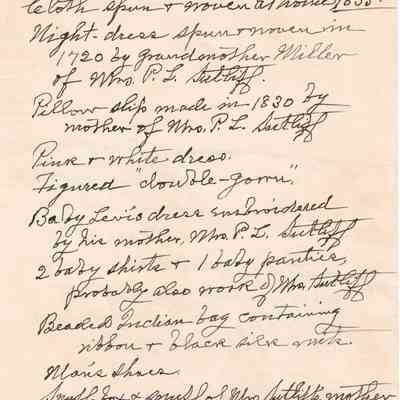 cloth spun & woven at home 1835.
Night-dress spun & woven in
1720 by grandmother Miller
of Mrs. P. L. Sutliff.
Pillow slip made in 1830 by
mother of Mrs. P. L. Sutliff
Pink & white dress.
Figured "double-gown".
Baby Levi's dress embroidered
by his mother, Mrs. P. L. Sutliff
2 baby shirts & 1 baby panties,
probably also work of Mrs. Sutliff
Beaded Indian bag containing
ribbon & black silk mits.
Man's shoes.
Snuff box & of Mrs Sutliff's mother